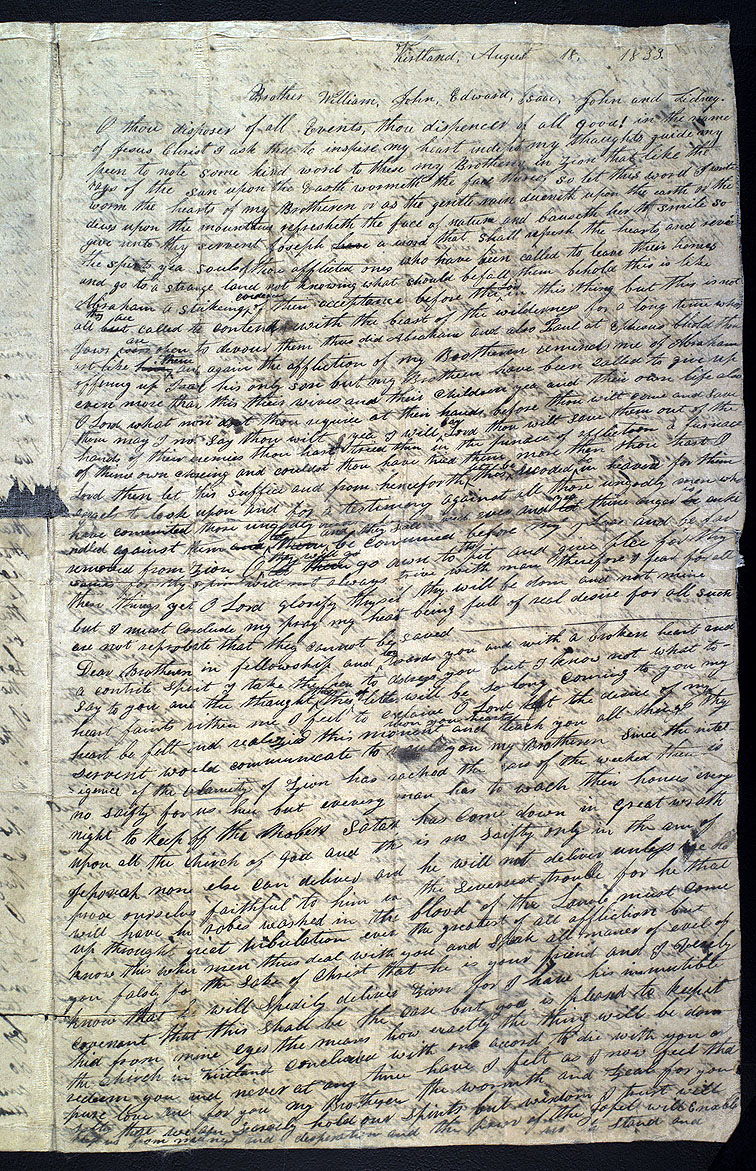 Kirtland, August 18, 1833.
Brother William, John, Edward, Isaac, John and Sidney.
O thou disposer of all Events, thou dispencer of all good! in the name
of Jesus Christ I ask thee to inspire my heart indite my thaughts guide my
peen to note some kind word to these my Brotheren in Zion that like the
rays of the sun upon the Earth wormeth the face thereof so let this word I write
worm the hearts of my Brotheren or as the gentle rain decendeth upon the earth or the
dews upon the mountins refresheth the face of nature and causeth her to smile so
give unto thy servent Joseph a word that shall refresh the hearts and revive
the spirits yea souls of those afflicted ones who have been called to leave their homes
and go to a strange land not knowing what should befall them behold this is like
Abraham a strikeing of their acceptance before thee in this thing but this is not
all called to contend with the beast of the wilderness for a long time whos
Jaws are to devour them thus did Abraham and also Paul at Ephesus bhold thou
art like him and again the affliction of my Brotheren reminds me of Abraham
offering up Isaac his only son but my Brotheren have been called to give up
even more than this their wives and their children yea and their own life also
O Lord what more dost thou require at their hands before thou wilt come and save
them may I not say thou wilt yea I will say Lord thou wilt save them out of the
hands of their enemies thou hast tried them in the furnace of affliction a furnace
of thine own chosing and couldst thou have tried them more then thou hast O
Lord then let this suffice and from henceforth let this be recoded in heaven for thine
angels to look upon and for a testimony against all those ungodly men who
have committed those ungodly
against him and be consumed before my face and be far
removed from Zion O go down to pit and give place for thy
will not always strive with man therefore I fear for all
these things yet O Lord glorify thyself thy will be done and not mine
but I must conclude my pray my heart being full of real desire for all such
are not reprobate that they cannot be saved
Dear Brotheren in fellowship and towards you and with a broken heart and
a contrite spirit I take the pen to adress you but I know not what to
say to you and the thaught that this letter will be so long coming to you my
heart faints within me I feel to exclaim O Lord let the desire of my
heart be felt and realized this moment and teach you all things thy
servent would communicate to you my Brotheren since the intel
igence of the calamity of Zion has reached the ears of the wicked there is
no saifty for us here but evevery man has to wach their houses every
night to keep off the Mobers Satan has come down in great wrath
upon all the Chirch of God and the is no saifty only in the arm of
Jehovah none else can deliver and he will not deliver unless we do
prove ourselves faithful to him in the severeest trouble for he that
will have his robes washed in the blood of the Lamb must come
up throught great tribulation even the greatest of all affliction but
know this when men thus deal with you and speak all maner of evil of
you falsly for the sake of Christ that he is your friend and I verily
know that he will spedily deliver Zion for I have his immutible
covenant that this shall be the case but god is pleased to keep it
hid from mine eyes the means how exactly the thing will be done
the chirch in Kirtland concluded with one acord to die with you or
redeem you and never at any time have I felt as I now feel that
pure love and for you my Brotheren the wormth and Zeal for you
safty that we can scarcely hold our spirits but wisdom I trust will
keep us from madness and desperation and the power of the Gospel will enable
us to stand and